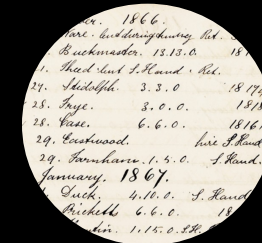 er. 1866.
Rare. lent during hurry Ret.
Buckmaster. 13.13.0. 181
1. Theed lent S. Hand. Ret.
27. Stidolph. 3.3.0 18174
28. Frye. 3.0.0. 1818
28. Case. 6.6.0. 1816
29. Eastwood. hire S. Hand
29. Farnham. 1.5.0. S. Hand.
January. 1867.
Duck. 4.10.0. S. Hand
Prickett 6.6.0. 18
tin. 1.15.0. S.H.